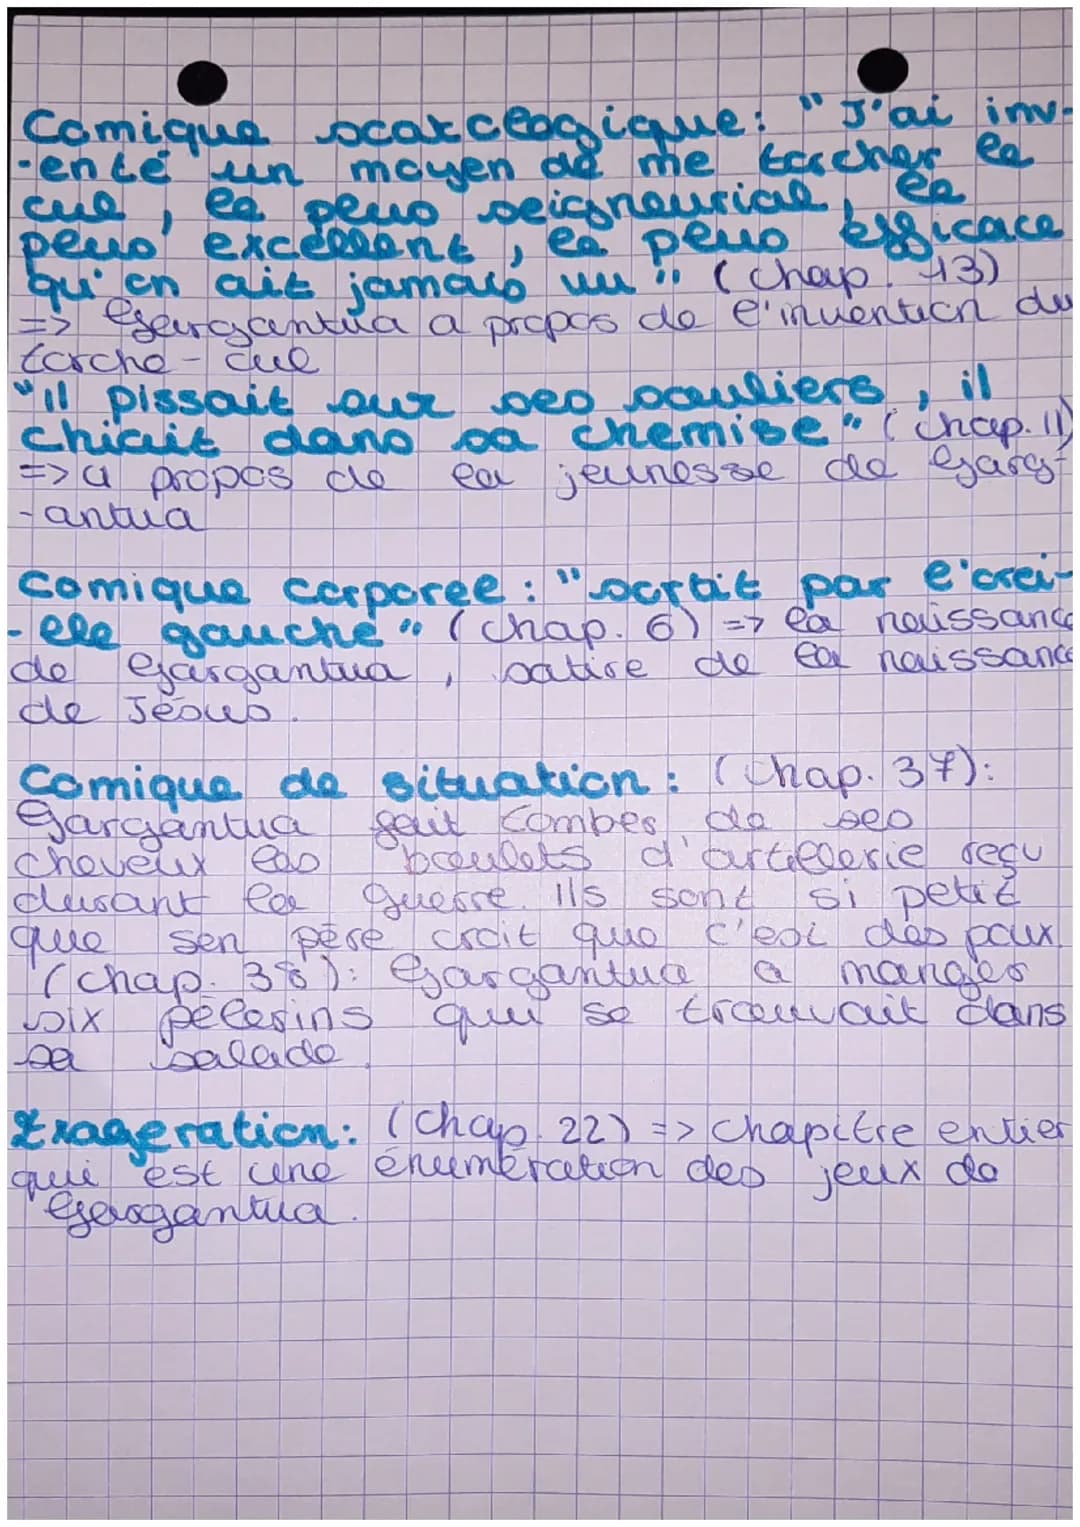 Comique scatologique: "J'ai inv-
-enté un moyen de me torcher le
cul, le plus seigneurial, le
plus excellent, le plus efficace
qu'on ait jamais vu" (chap. 13)
=> Gargantua a propos de l'invention du
torche-cul
"Il pissait sur ses souliers, il
chiait dans sa chemise" (chap. 11)
=> a propos de la jeunesse de Garg-
-antua
Comique corporel: "sortit par l'orei-
-lle gauche" (chap. 6) => la naissance
de Gargantua, satire de la naissance
de Jésus.
Comique de situation: (chap. 37):
Gargantua fait tomber de ses
cheveux les boulets d'artillerie reçu
durant la guerre. Ils sont si petit
que son père croit que c'est des poux.
(chap. 38): Gargantua a manger
six pèlerins qui se trouvait dans
sa salade.
Exageration: (chap. 22) => chapitre entier
qui est une énumération des jeux de
Gargantua.